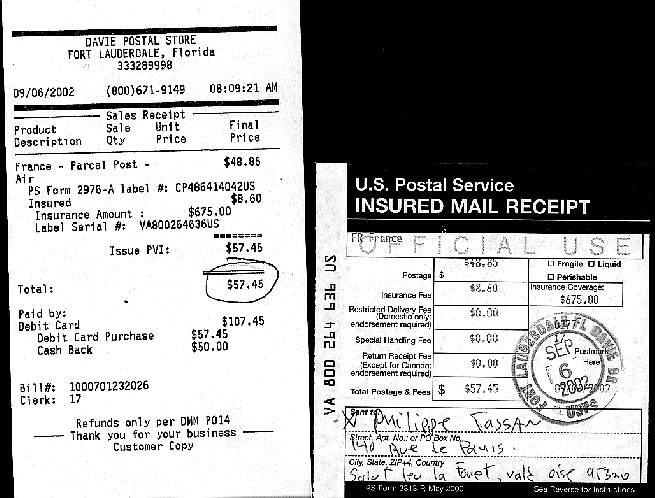 DAVIE POSTAL STORE
FORT LAUDERDALE, Florida
333289998
09/06/2002 (800)671-9149 08:09:21 AM
Sales Receipt
Product Sale Unit Final
Description Qty Price Price
France - Parcel Post - $48.85
Air
PS Form 2976-A label #: CP486414042US
Insured $8.60
Insurance Amount : $675.00
Label Serial #: VA800264636US
========
Issue PVI: $57.45
Total: $57.45
Paid by:
Debit Card $107.45
Debit Card Purchase $57.45
Cash Back $50.00
Bill#: 1000701232026
Clerk: 17
Refunds only per DMM P014
Thank you for your business
Customer Copy
U.S. Postal Service
INSURED MAIL RECEIPT
FR France
OFFICIAL USE
VA 800 264 636 US
Postage $ $48.85
☐ Fragile ☐ Liquid
☐ Perishable
Insurance Fee $8.60
Insurance Coverage:
$675.00
Restricted Delivery Fee
(Domestic only;
endorsement required) $0.00
Special Handling Fee $0.00
Return Receipt Fee
(Except for Cannon;
endorsement required) $0.00
Total Postage & Fees $ $57.45
Postmark
Here
FORT LAUDERDALE FL DAVIE BR
SEP
6
2002
USPS
Sent to:
Philippe Tassan
Street, Apt. No.; or PO Box No.
140 Rue de
City, State, ZIP+4, Country
la Foret, val oise
PS Form 3813-P, May 2000 See Reverse for Instructions